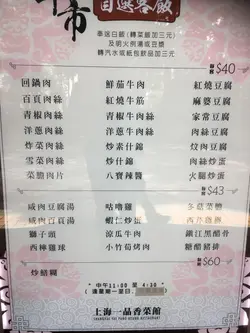 午市自選客飯
奉送白飯(轉菜飯加三元)
及明火例湯或豆漿
轉汽水或紙包飲品加三元
$40
回鍋肉 鮮茄牛肉 紅燒豆腐
百頁肉絲 紅燒牛筋 麻婆豆腐
青椒肉絲 青椒牛肉絲 家常豆腐
洋蔥肉絲 洋蔥牛肉絲 肉絲豆腐
炸菜肉絲 炒素什錦 炆肉豆腐
雪菜肉絲 炒什錦 肉絲炒蛋
菜膽肉片 八寶辣醬 火腿炒蛋
$43
咸肉豆腐湯 咕嚕雞 冬菇菜膽
咸肉百頁湯 蝦仁炒蛋
獅子頭 涼瓜牛肉 鎮江黑醋骨
西檸雞球 小竹荀烤肉 糖醋豬排
$60
炒鱔糊
"中午11:00至4:30"
上海一品香菜館